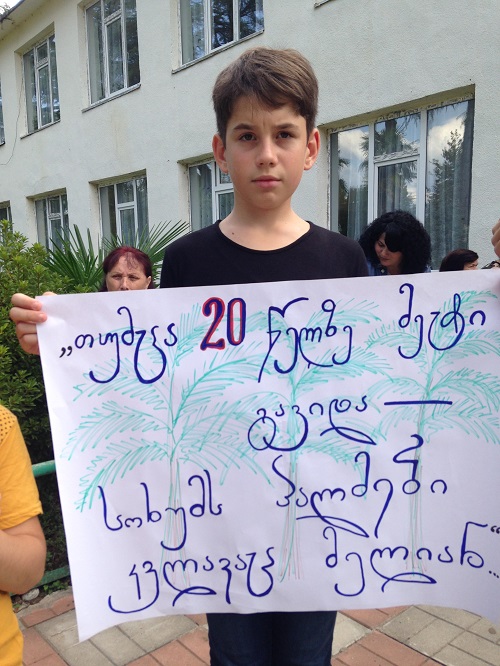 „თუმცა 20 წელზე მეტი
გავიდა —
სოხუმს პალმები
კვლავაც მელიან“...